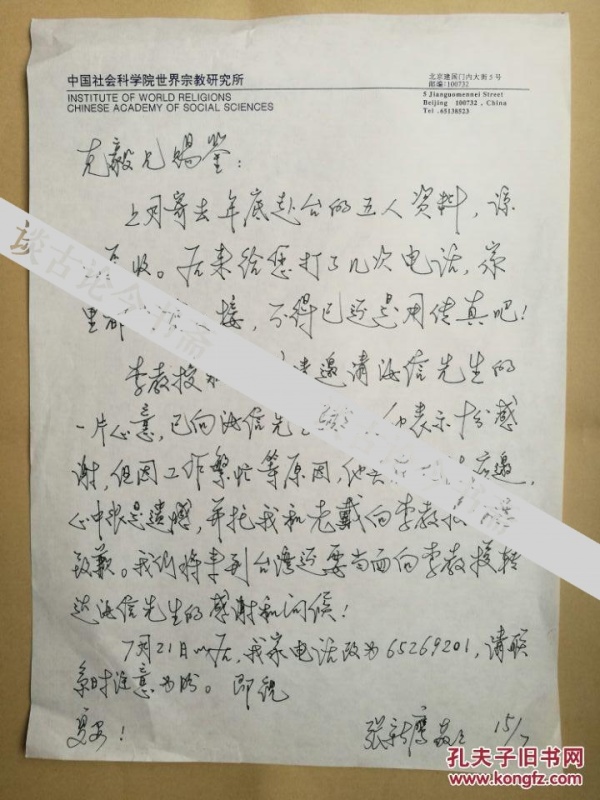 中国社会科学院世界宗教研究所
INSTITUTE OF WORLD RELIGIONS
CHINESE ACADEMY OF SOCIAL SCIENCES
北京建国门内大街5号
邮编:100732
5 Jianguomennei Street
Beijing 100732, China
Tel. 65138523
克毅兄赐鉴:
上月寄去年底赴台的五人资料,谅
收。后来给您打了几次电话,家
里都接,不得已还是用传真吧!
李教授邀请海信先生的
一片心意,已向海信先生表示十分感
谢,但因工作繁忙等原因,他应邀,
心中很是遗憾,并托我和老戴向李教
致歉。我们将来到台湾还要当面向李教授转
达海信先生的感谢和问候!
7月21日以后,我家电话改为65269201,请联
系时注意为盼。即祝
夏安!
张新鹰敬上 15/7
谈古论今书斋
孔夫子旧书网
www.kongfz.com